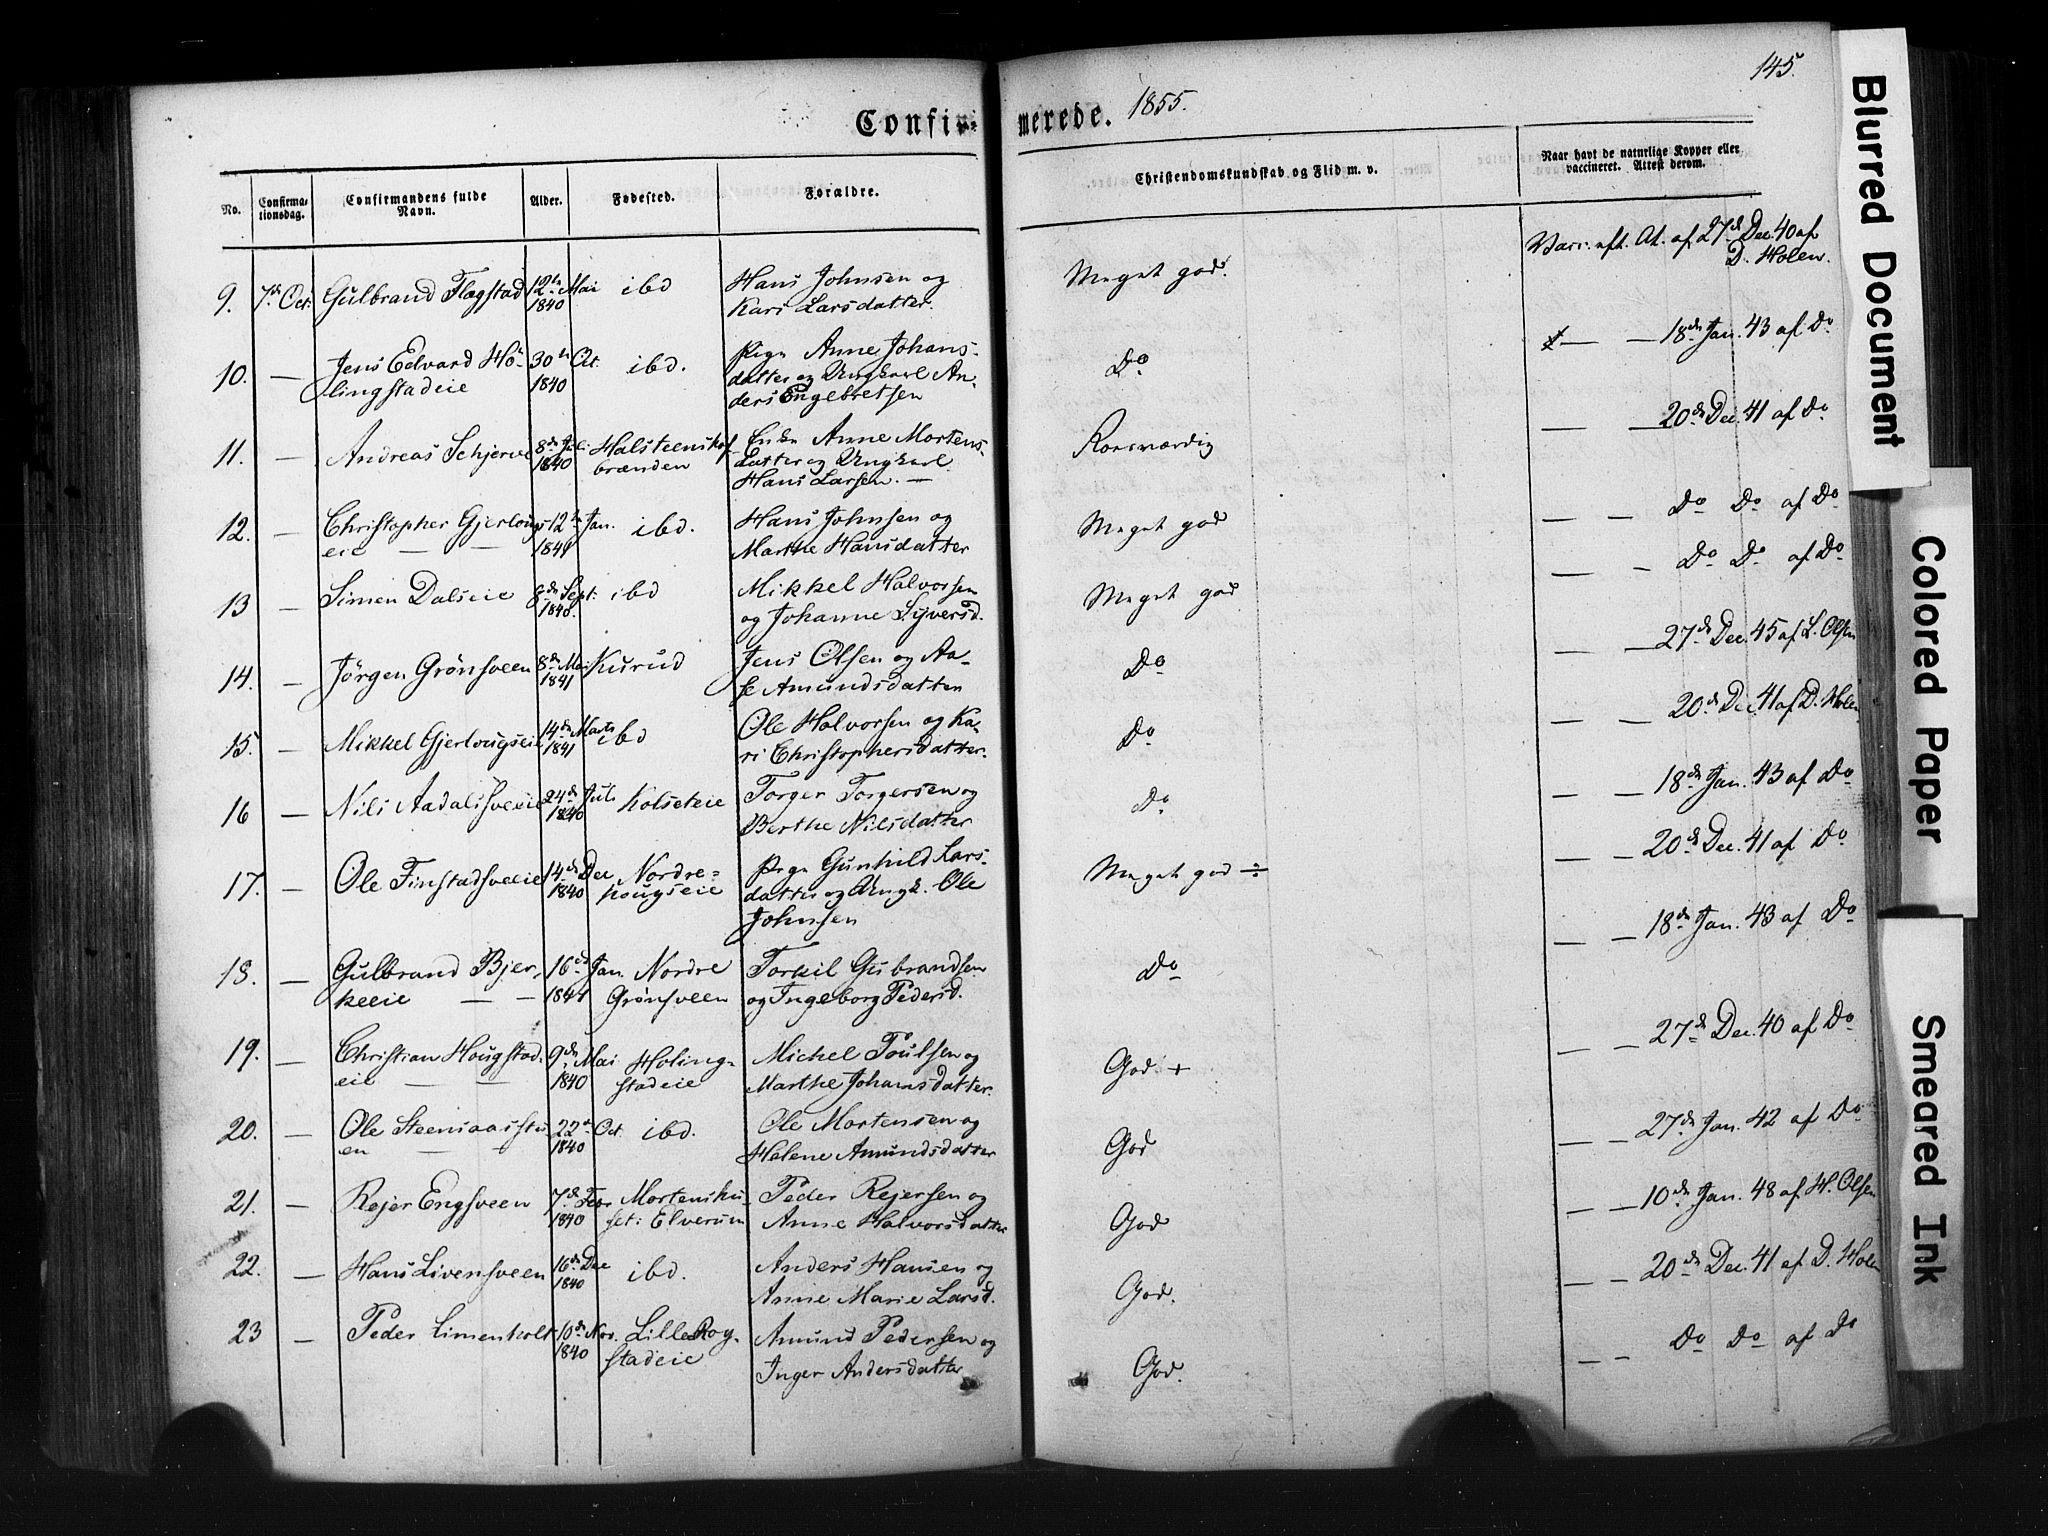 145.
Confirmerede. 1855.
No. Confirmationsdag. Confirmandens fulde Navn. Alder. Fødested. Forældre. Christendomskundskab og Flid m. v. Naar havt de naturlige Kopper eller vaccineret. Attest derom.
9. 7de Oct. Gulbrand Flagstad 12te Mai ibd Hans Johnsen og Meget god. Vacc. eft. At. af 27de Dec. 40 af
1840 Kari Larsdatter. D. Holen.
10. — Jens Edvard Hö- 30te Oct. ibd. Pige Anne Johans- Do — — 18de Jan. 43 af Do
lingstadeie 1840 datter og Ungkarl An-
ders Engebretsen
11. — Andreas Schjerve 8de Juli Halsteenshof- Enke Anne Mortens- Roesværdig — — 20de Dec. 41 af Do
1840 brænden datter og Ungkarl
Hans Larsen. —
12. — Christopher Gjerloug- 12te Jan. ibd. Hans Johnsen og Meget god — — Do Do af Do
eie — — 1841 Marthe Hansdatter
13 — Simen Dalseie 8de Sept: ibd Mikkel Halvorsen Meget god — — Do Do af Do
1840. og Johanne Syversd.
14. — Jörgen Grönsveen 8de Mai Kurud Jens Olsen og Aa- Do — — 27de Dec. 45 af L. Olsen
1841 se Amundsdatter
15. — Mikkel Gjerlougseie 14de Marts ibd Ole Halvorsen og Ka- Do — — 20de Dec 41 af D. Holen
1841 ri Christophersdatter.
16 — Nils Aadalssveeie 24de Juli Kolseteie Torger Torgersen og Do — — 18de Jan. 43 af Do
1840 Berthe Nilsdatter
17. — Ole Finstadsveeie 14de Dec Nordre- Pige Gunhild Lars- Meget god ÷ — — 20de Dec. 41 af Do
1840 hougseie datter og Ungk. Ole
Johnsen
18. — Gulbrand Bjer- 16de Jan. Nordre Torkil Gulbrandsen Do — — 18de Jan. 43 af Do
keeie — — 1841 Grönsveen og Ingeborg Pedersd.
19. — Christian Hougstad- 9de Mai Holing- Michel Poulsen og God + — — 27de Dec. 40 af Do
eie — — 1840 stadeie Marthe Johansdatter.
20. — Ole Steensaasstu- 22de Oct ibd. Ole Mortensen og God — — 27de Jan. 42 af Do
en — — 1840 Halene Amundsdatter
21. — Rejer Engsveen 7de Febr Mortenshu- Peder Rejersen og God — — 10de Jan. 48 af H. Olsen
1840 set i Elverum Anne Halvorsdatter
22. — Hans Livensveen 16de Dec ibd. Anders Hansen og God. — — 20de Dec. 41 af D. Holen
1840 Anne Marie Larsd.
23 — Peder Limenholt 10de Nov. Lille Rog- Amund Pedersen og God. — — Do Do af Do
1840 stadeie Inger Andersdatter
Blurred Document
Colored Paper
Smeared Ink